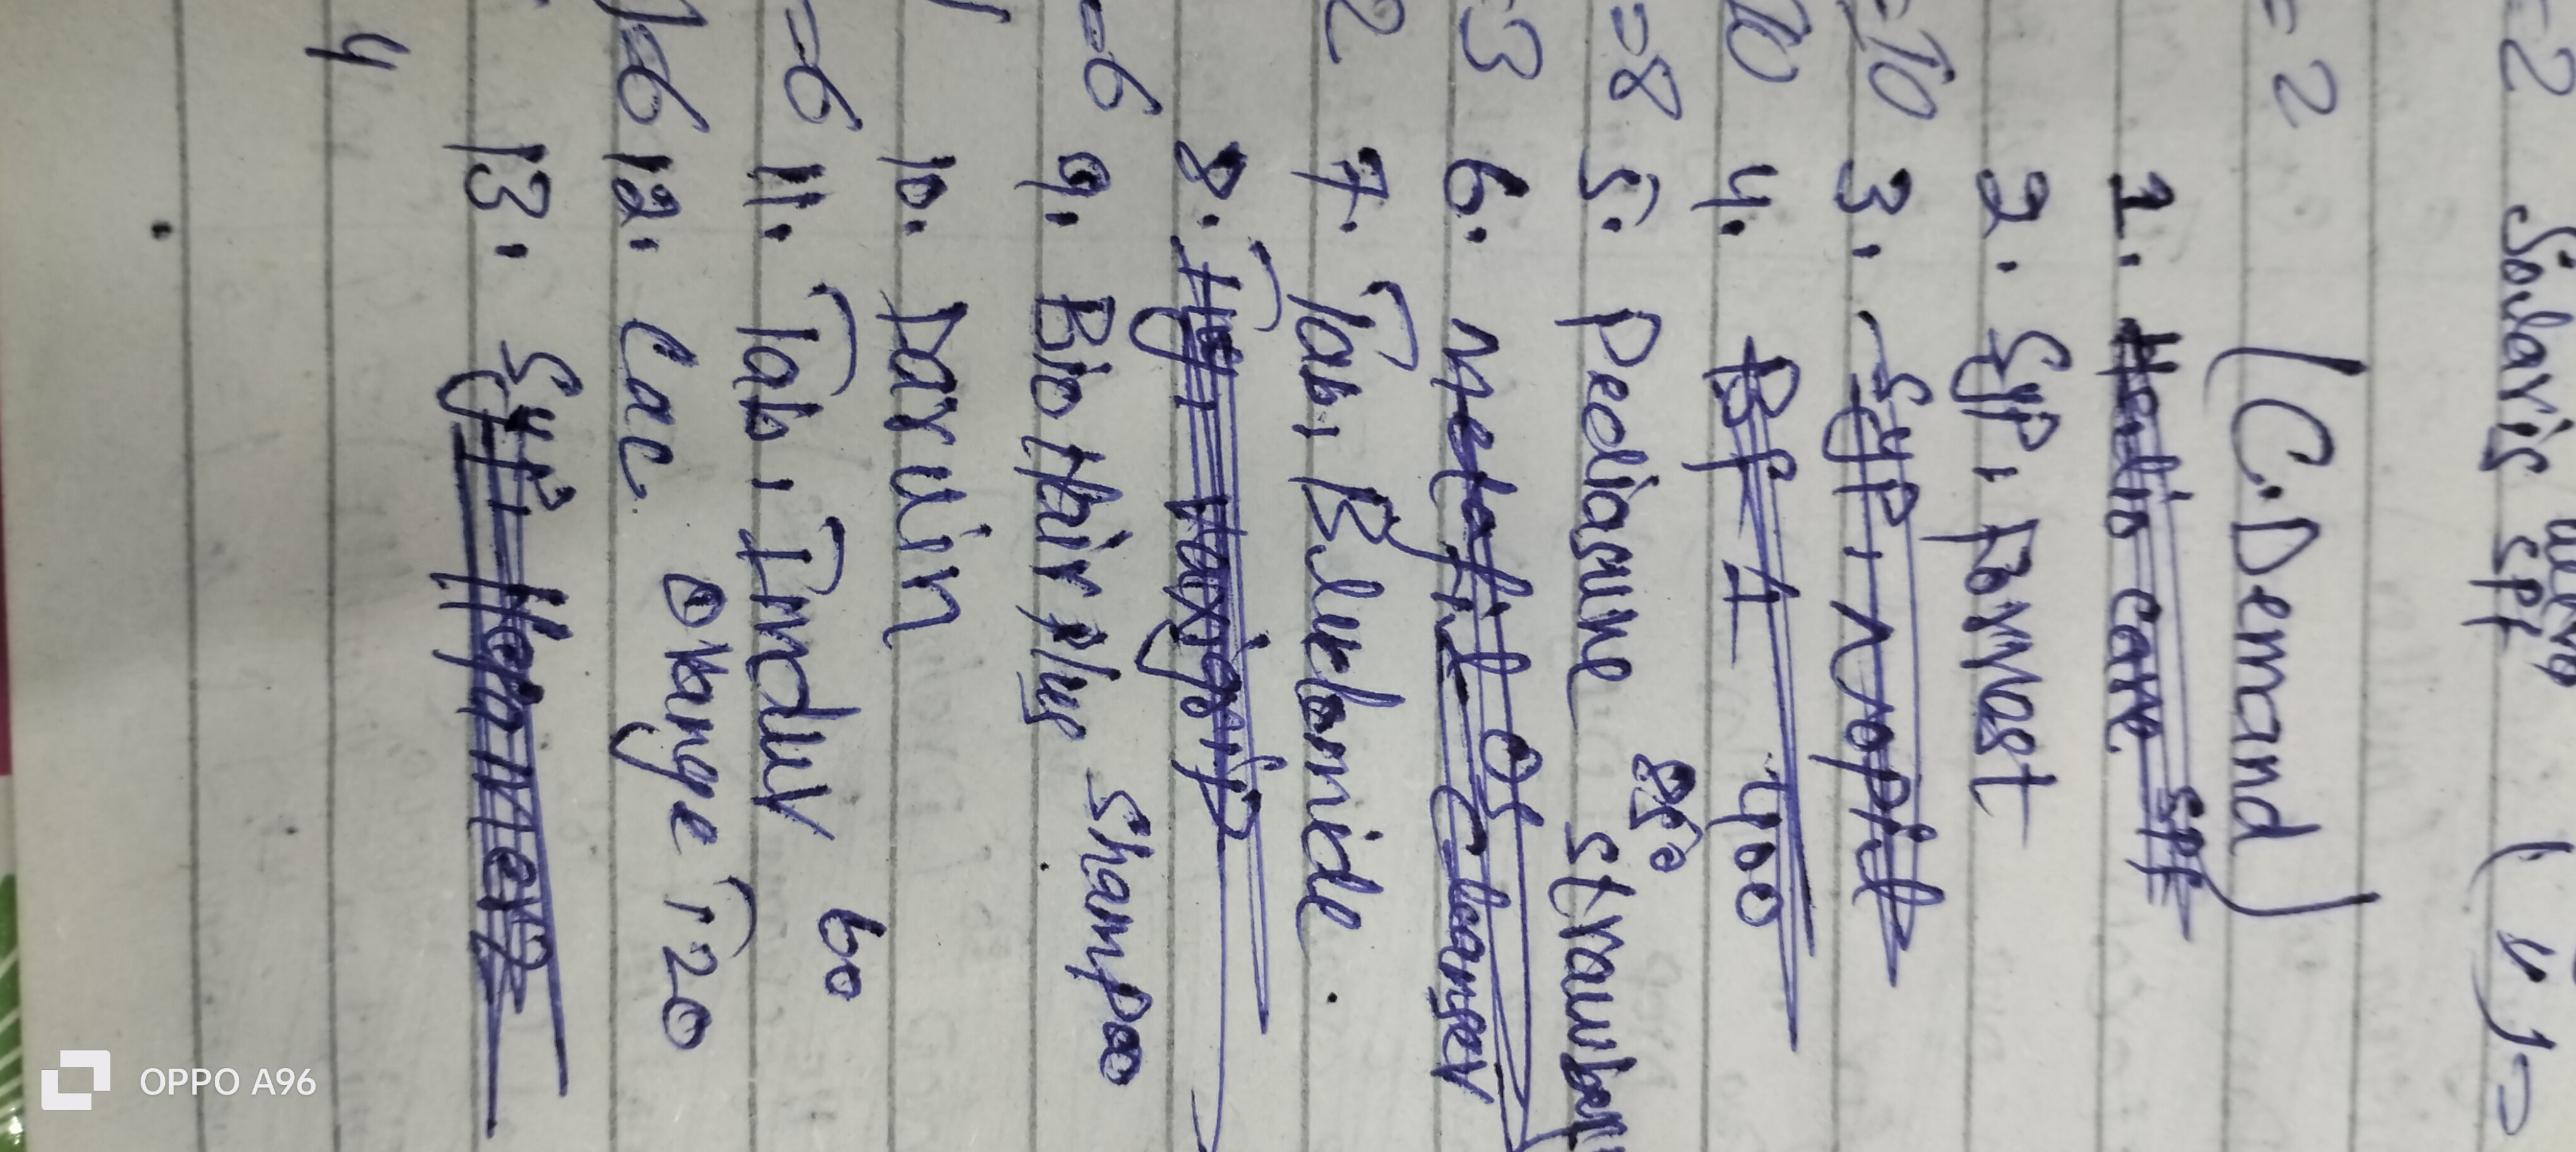 =2 Solaris SPF
=2
(C.Demand)
1. Hedio care SPF
2. Syp. Formast
=10 3. Syp. Nopil
10 4. Bf-1 400
=8 5. Pediasure 850 strawbery
=3 6. metafil OS Cleanser
2 7. Tab. Blurbomide
8.
=6 9. Bio Hair Plus Shampoo
10. Daruin
=6 11. Tab. Imdur 60
=6 12. Cac. Orange T20
13. Syp. Hepa Merz
4
OPPO A96